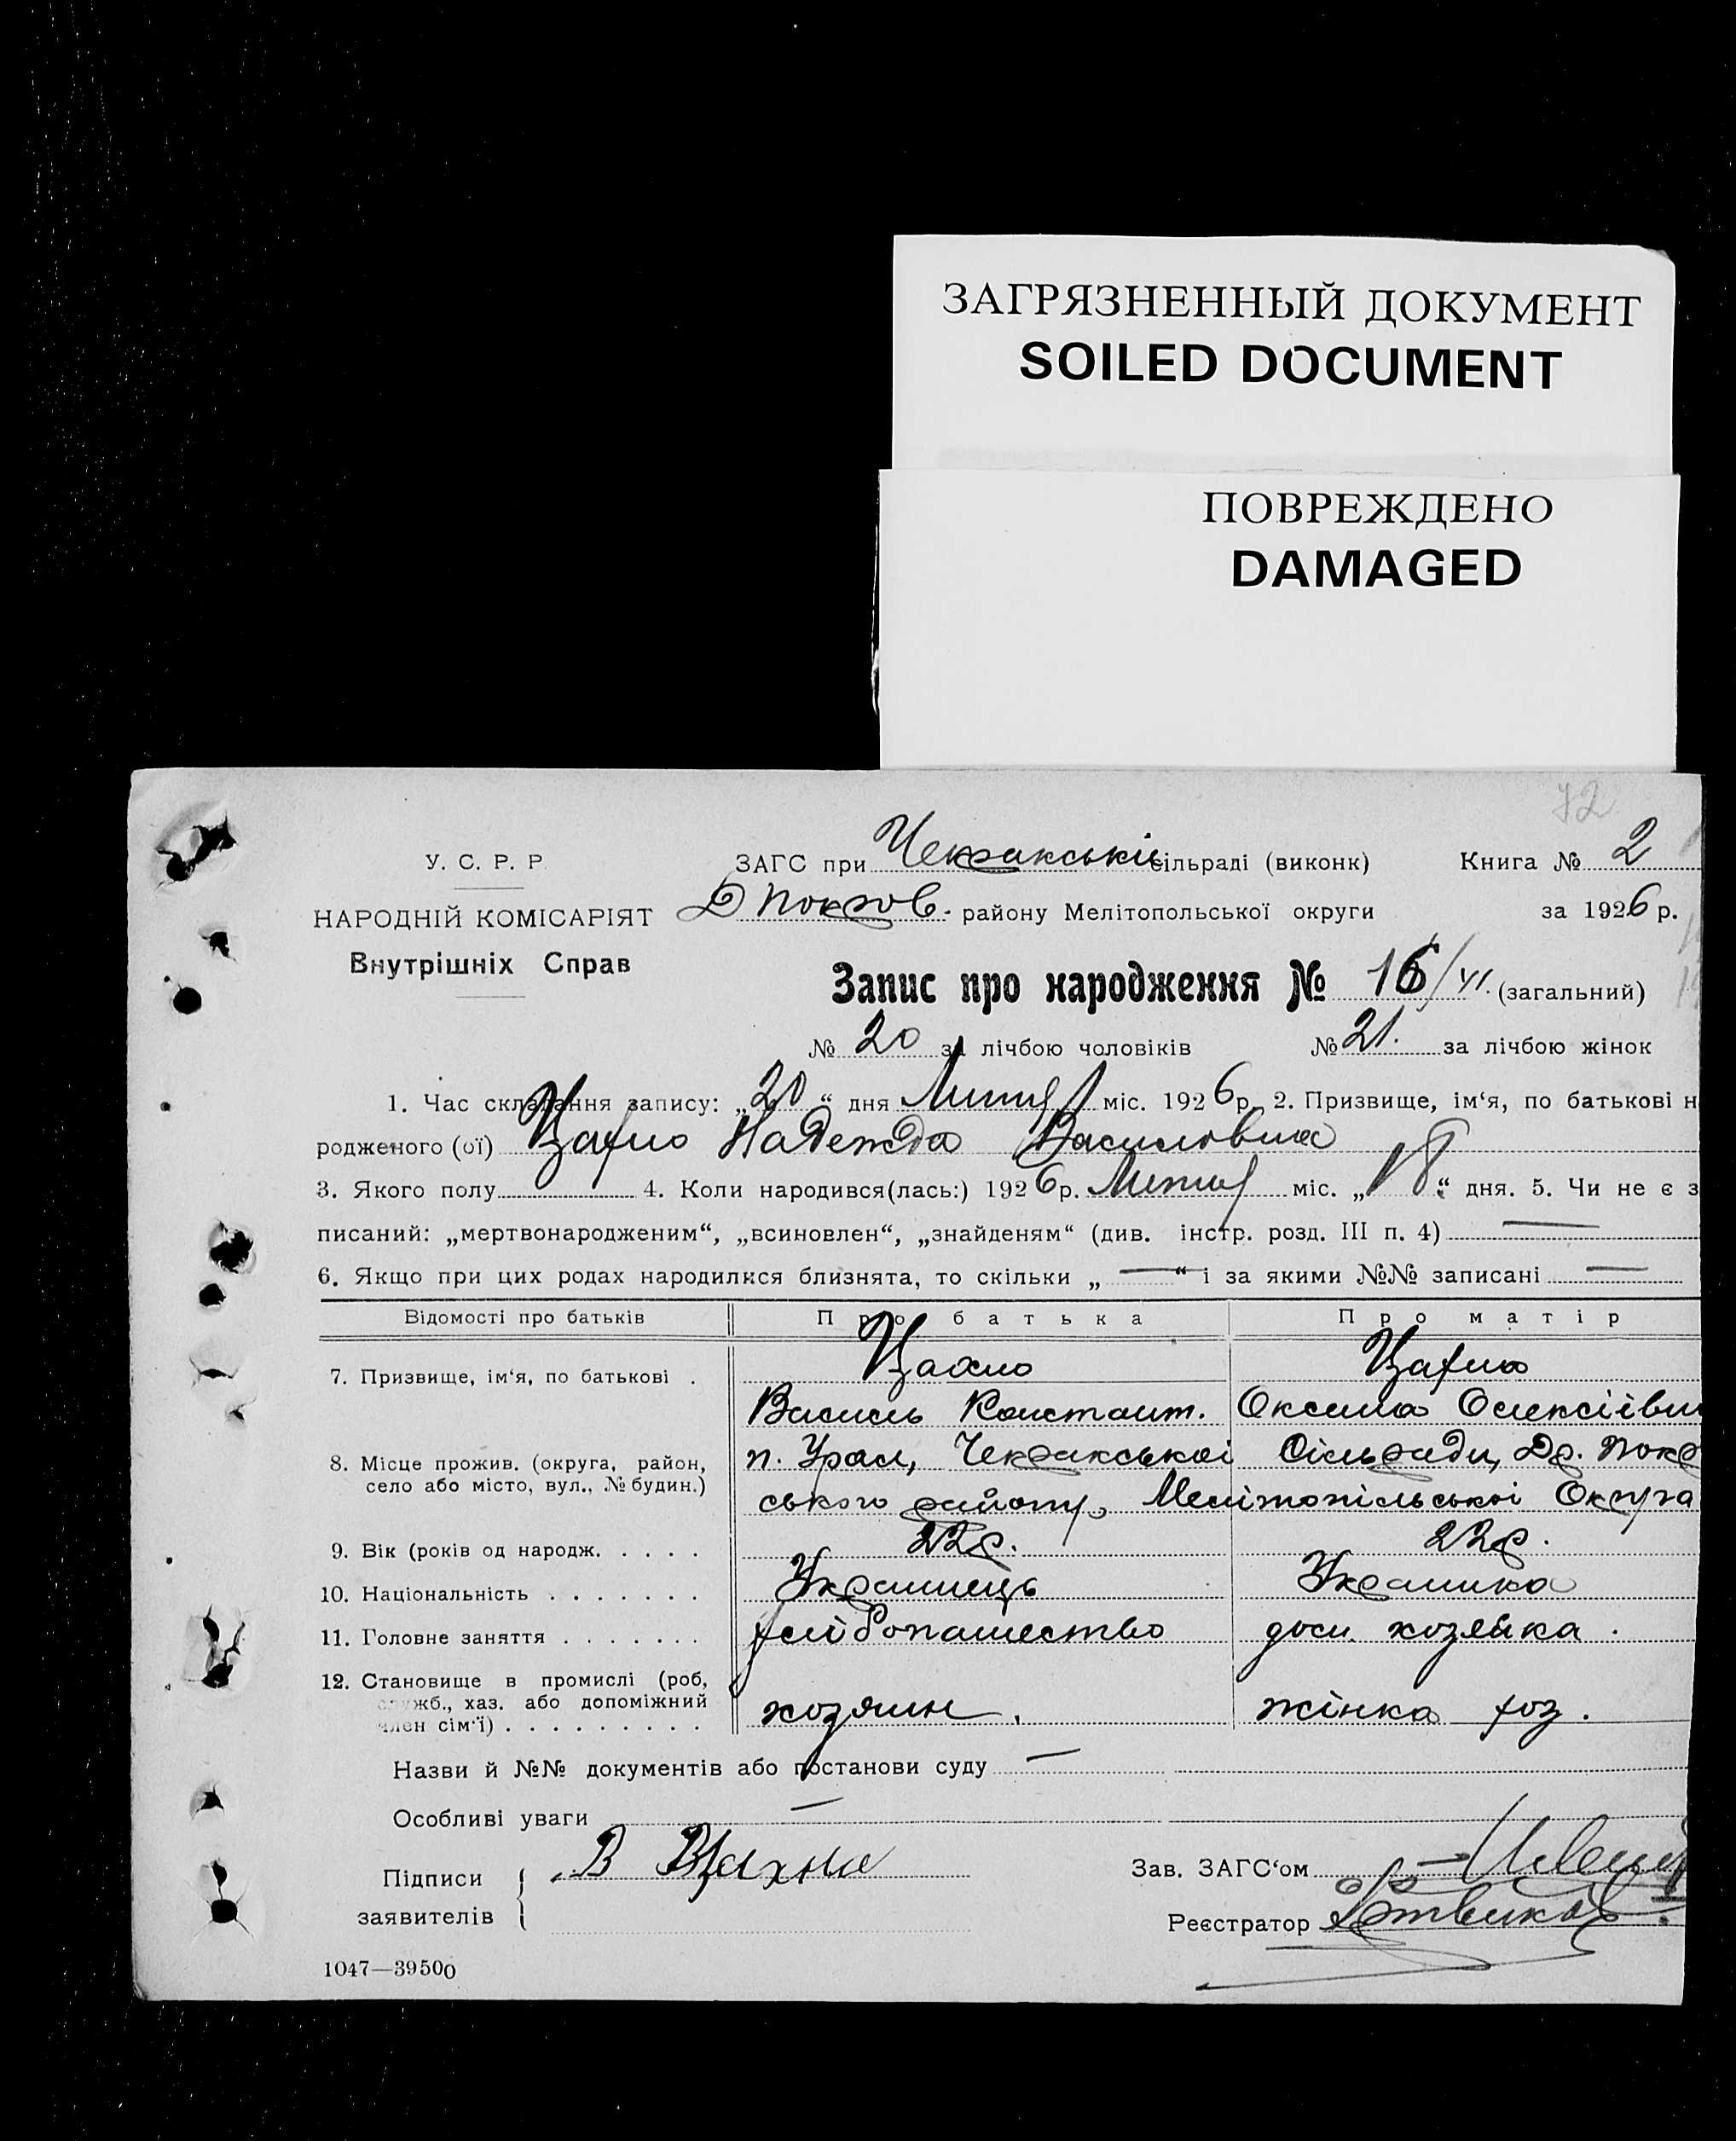 ЗАГРЯЗНЕННЫЙ ДОКУМЕНТ
SOILED DOCUMENT
ПОВРЕЖДЕНО
DAMAGED
72
У. С. Р. Р.
НАРОДНІЙ КОМІСАРІЯТ
Внутрішніх Справ
ЗАГС при Чекракські сільраді (виконк) Книга № 2
Д Покров. району Мелітопольської округи за 1926 р.
Запис про народження № 16/VI. (загальний)
№ 20 за лічбою чоловіків № 21. за лічбою жінок
1. Час складання запису: „20“ дня Липня міс. 1926 р. 2. Призвище, ім‘я, по батькові н
родженого (ої) Цахло Надежда Василовна
3. Якого полу 4. Коли народився(лась:) 1926 р. Липня міс. „18“ дня. 5. Чи не є з
писаний: „мертвонародженим“, „всиновлен“, „знайденям“ (див. інстр. розд. III п. 4) —
6. Якщо при цих родах народилися близнята, то скільки „—“ і за якими №№ записані —
Відомості про батьків Про батька Про матір
7. Призвище, ім‘я, по батькові . Цахло Цахло
Василь Констант. Оксана Олексіївн
8. Місце прожив. (округа, район, п. Урал, Чекракськоі Сільради, Др. Покр
село або місто, вул., № будин.) ського району, Мелітопільськоі Округа
9. Вік (років од народж. . . . . 22р. 22р.
10. Національність . . . . . . . Украинець Украинка
11. Головне заняття . . . . . . . хлібопашество дом. хозяйка.
12. Становище в промислі (роб,
служб., хаз. або допоміжний
член сім‘ї) . . . . . . . . . хозяин. жінка хоз.
Назви й №№ документів або постанови суду —
Особливі уваги —
Підписи В Цахло Зав. ЗАГС‘ом
заявителів Реєстратор
1047—39500